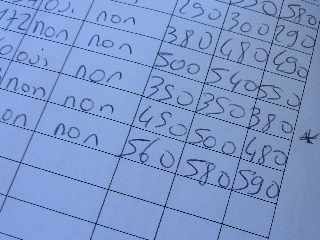 580
290 300 290
oui. non 380 480 490
172 non non 500 540 550
oui non 350 350 380
non non 450 500 480 *
non 560 580 590